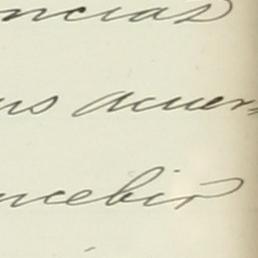 ncias
us acuer-
ncebir